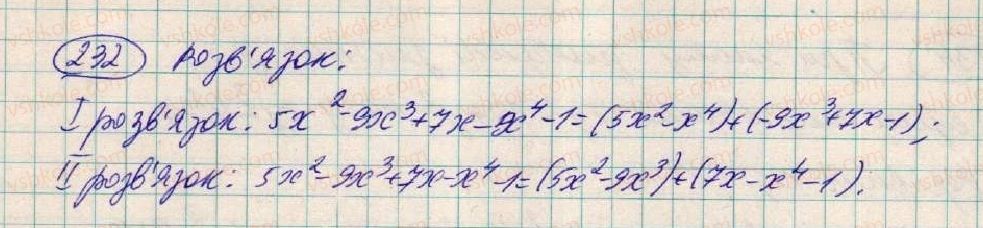 232 Розв'язок:
I розв'язок: 5x²-9x³+7x-x⁴-1=(5x²-x⁴)+(-9x³+7x-1);
II розв'язок: 5x²-9x³+7x-x⁴-1=(5x²-9x³)+(7x-x⁴-1).